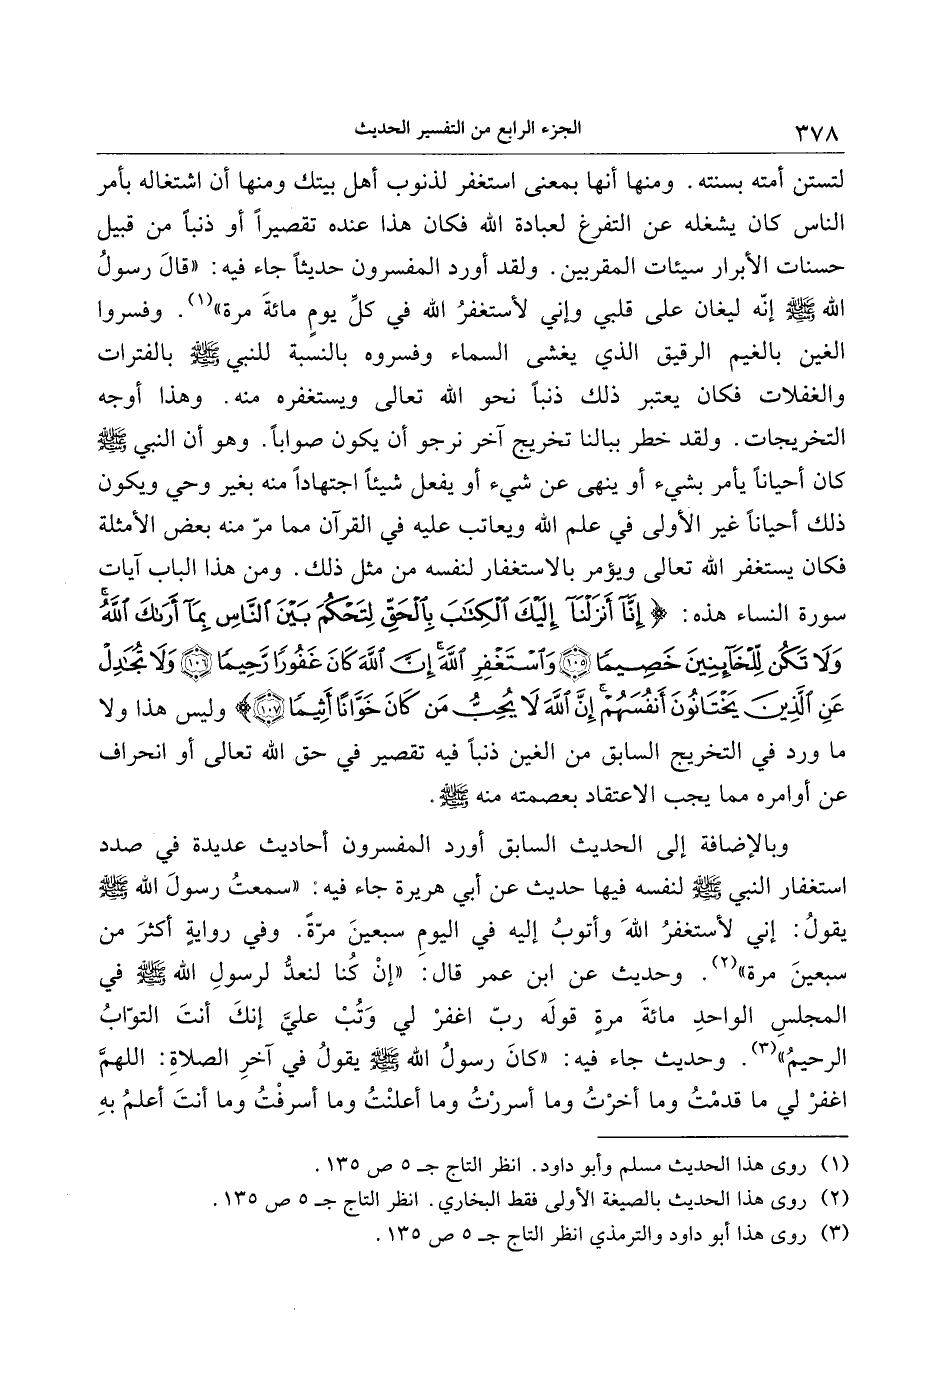 ٣٧٨
الجزء الرابع من التفسير الحديث
لتستن أمته بسنته. ومنها أنها بمعنى استغفر لذنوب أهل بيتك ومنها أن اشتغاله بأمر
الناس كان يشغله عن التفرغ لعبادة الله فكان هذا عنده تقصيراً أو ذنباً من قبيل
حسنات الأبرار سيئات المقربين. ولقد أورد المفسرون حديثاً جاء فيه: «قالَ رسولُ
الله ﷺ إنّه ليغان على قلبي وإني لأستغفرُ الله في كلِّ يومٍ مائةَ مرة»(١). وفسروا
الغين بالغيم الرقيق الذي يغشى السماء وفسروه بالنسبة للنبي ﷺ بالفترات
والغفلات فكان يعتبر ذلك ذنباً نحو الله تعالى ويستغفره منه. وهذا أوجه
التخريجات. ولقد خطر ببالنا تخريج آخر نرجو أن يكون صواباً. وهو أن النبي ﷺ
كان أحياناً يأمر بشيء أو ينهى عن شيء أو يفعل شيئاً اجتهاداً منه بغير وحي ويكون
ذلك أحياناً غير الأولى في علم الله ويعاتب عليه في القرآن مما مرّ منه بعض الأمثلة
فكان يستغفر الله تعالى ويؤمر بالاستغفار لنفسه من مثل ذلك. ومن هذا الباب آيات
سورة النساء هذه: ﴿ إِنَّآ أَنزَلْنَآ إِلَيْكَ ٱلْكِتَٰبَ بِٱلْحَقِّ لِتَحْكُمَ بَيْنَ ٱلنَّاسِ بِمَآ أَرَىٰكَ ٱللَّهُۚ
وَلَا تَكُن لِّلْخَآئِنِينَ خَصِيمًا ١٠٥ وَٱسْتَغْفِرِ ٱللَّهَۖ إِنَّ ٱللَّهَ كَانَ غَفُورًا رَّحِيمًا ١٠٦ وَلَا تُجَٰدِلْ
عَنِ ٱلَّذِينَ يَخْتَانُونَ أَنفُسَهُمْۚ إِنَّ ٱللَّهَ لَا يُحِبُّ مَن كَانَ خَوَّانًا أَثِيمًا ١٠٧﴾ وليس هذا ولا
ما ورد في التخريج السابق من الغين ذنباً فيه تقصير في حق الله تعالى أو انحراف
عن أوامره مما يجب الاعتقاد بعصمته منه ﷺ.
وبالإضافة إلى الحديث السابق أورد المفسرون أحاديث عديدة في صدد
استغفار النبي ﷺ لنفسه فيها حديث عن أبي هريرة جاء فيه: «سمعتُ رسولَ الله ﷺ
يقولُ: إني لأستغفرُ اللهَ وأتوبُ إليه في اليومِ سبعينَ مرّةً. وفي روايةٍ أكثرَ من
سبعينَ مرة»(٢). وحديث عن ابن عمر قال: «إنْ كُنا لنعدُّ لرسولِ الله ﷺ في
المجلسِ الواحدِ مائةَ مرةٍ قولَه ربّ اغفرْ لي وَتُبْ عليَّ إنكَ أنتَ التوّابُ
الرحيمُ»(٣). وحديث جاء فيه: «كانَ رسولُ الله ﷺ يقولُ في آخرِ الصلاةِ: اللهمَّ
اغفرْ لي ما قدمْتُ وما أخرْتُ وما أسررْتُ وما أعلنْتُ وما أسرفْتُ وما أنتَ أعلمُ بهِ
(١) روى هذا الحديث مسلم وأبو داود. انظر التاج جـ ٥ ص ١٣٥.
(٢) روى هذا الحديث بالصيغة الأولى فقط البخاري. انظر التاج جـ ٥ ص ١٣٥.
(٣) روى هذا أبو داود والترمذي انظر التاج جـ ٥ ص ١٣٥.